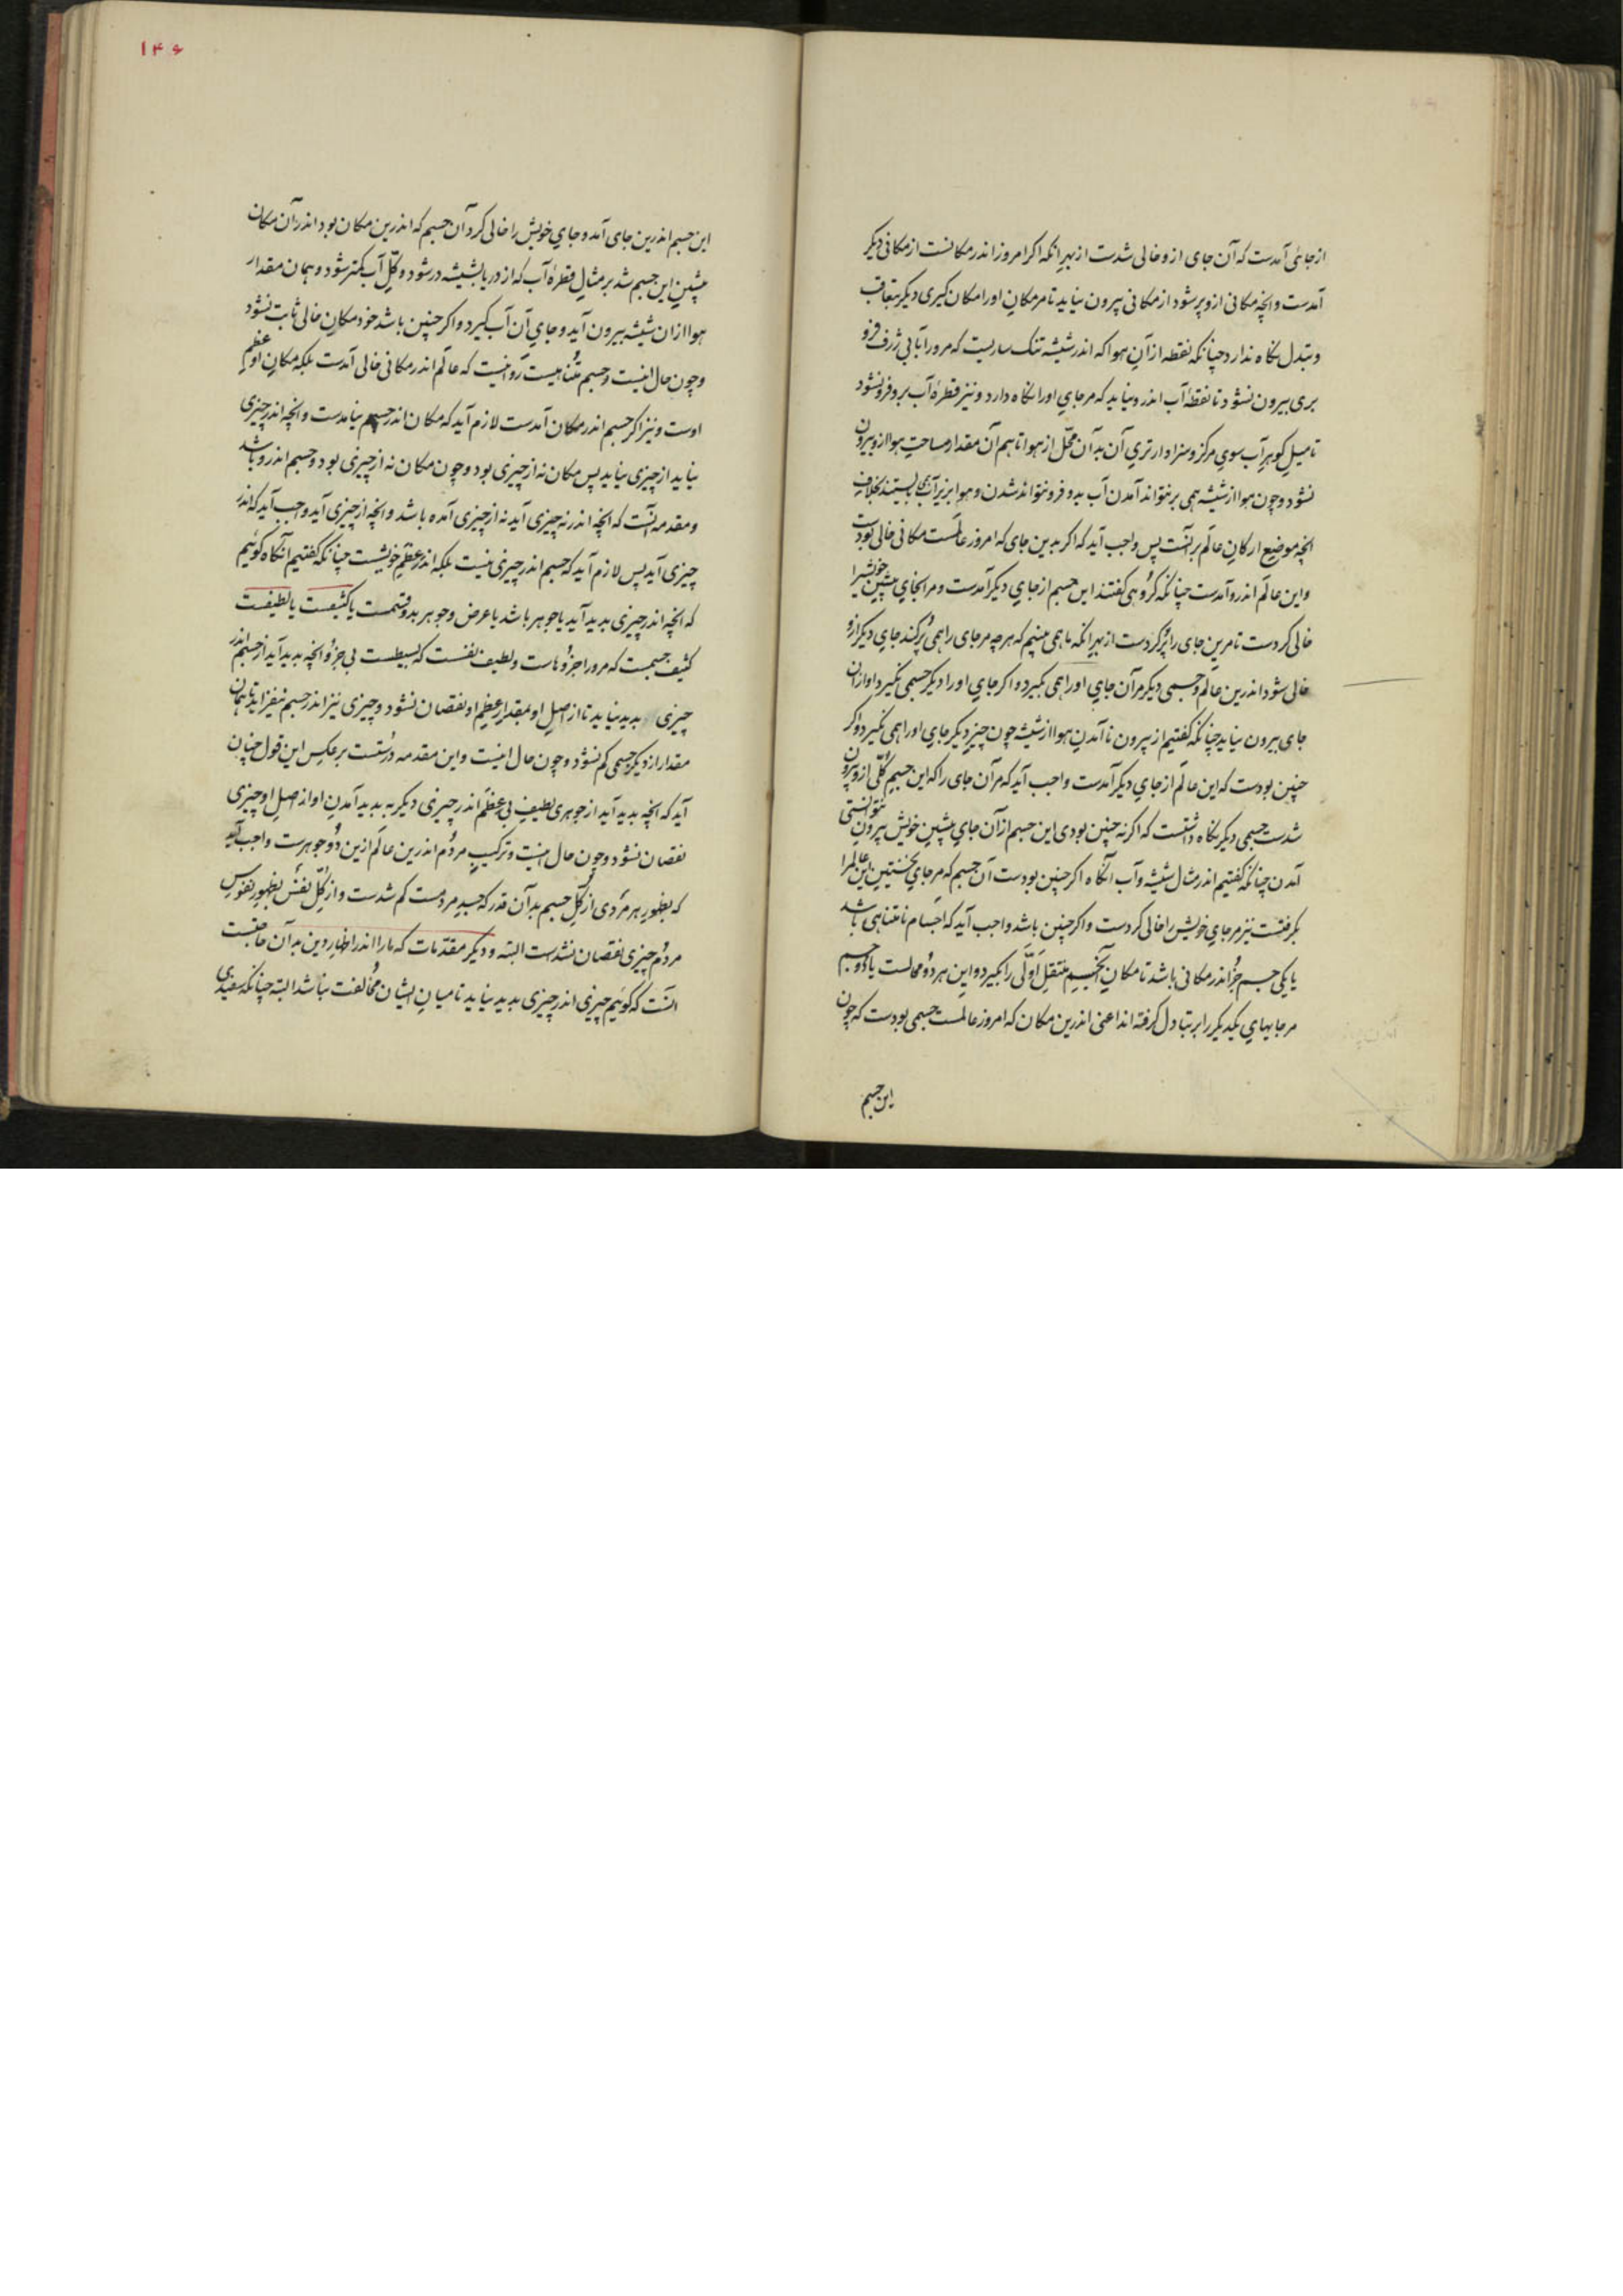 از جائی آمدست که آن جای ازو خالی شدست از بهر انکه اکر امروز اندر مکانست از مکانی دیکر
آمدست وانچه مکانی ازو پر شود از مکانی بیرون نیاید تا مر مکان اورا مکان کیری دیکر بتعاقب
و تبدل نکاه ندارد چنانکه نقطه از آن هوا که اندر شیشه تنک ساریست که مرورا بآبی ژرف فرو
بری بیرون نشود تا نقطهٔ آب اندرو نیاید که مر جای اورا نکاه دارد و نیز قطرهٔ آب برو فرو نشود
تا میل کوهر آب سوی مرکز و سزاوارتری آن بدآن محل از هوا تا هم آن مقدار مساحت هوا ازو بیرون
نشود و چون هوا از شیشه همی بر نتواند آمدن آب بدو فرو نتواند شدن و هوا بزیر آب همی بایستد بخلاف
انچه موضع ارکان عالم برآنست پس واجب آید که اکر بدین جای که امروز عالمست مکانی خالی بودست
واین عالم اندرو آمدست چنانکه کروهی کفتند این جسم از جای دیکر آمدست و مر انجای پیشین خویش را
خالی کردست تا مرین جای را پر کردست از بهر انکه ما همی بینیم که هرچه مر جای را همی پر کند جای دیکر ازو
خالی شود اندرین عالم و جسمی دیکر مرآن جای اورا همی بکیرد و اکر جای اورا دیکر جسمی نکیرد او از آن
جای بیرون نیاید چنانکه کفتیم از بیرون ناآمدن هوا از شیشه چون چیز دیکر جای اورا همی نکیرد و اکر
چنین بودست که این عالم از جای دیکر آمدست واجب آید که مرآن جای را که این جسم کلی ازو بیرون
شدست جسمی دیکر نکاه داشتست که اکر نه چنین بودی این جسم از آن جای پیشین خویش بیرون نتوانستی
آمدن چنانکه کفتیم اندر مثال شیشه و آب آنکاه اکر چنین بودست آن جسم که مر جای نخستین این عالم را
بکرفتست نیز مر جای خویش را خالی کردست و اکر چنین باشد واجب آید که اجسام نامتناهی باشد
یا یکی جسم جز اندر مکانی باشد تا مکان آنجسم منتقل اولی را بکیرد و این هر دو محالست یا دو جسم
مر جایهای یکدیکر را بر تبادل کرفته اند اعنی اندرین مکان که امروز عالمست جسمی بودست که چون
این جسم
۱۴۶
این جسم اندرین جای آمد و جای خویش را خالی کرد آن جسم که اندرین مکان بود اندر آن مکان
پیشین این جسم شد بر مثال قطرهٔ آب که از دریا بشیشه در شود و کل آب کمتر شود و بهمان مقدار
هوا از آن شیشه بیرون آید و جای آن آب کیرد و اکر چنین باشد خود مکان خالی ثابت نشود
و چون حال اینست و جسم متناهیست روا نیست که عالم اندر مکانی خالی آمدست بلکه مکان او عظم
اوست و نیز اکر جسم اندر مکان آمدست لازم آید که مکان اندر جسم نیامدست وانچه اندر چیزی
نیاید از چیزی نیاید پس مکان نه از چیزی بود و چون مکان نه از چیزی بود و جسم اندرو باشد
و مقدمه آنست که انچه اندر نه چیزی آید نه از چیزی آمده باشد وانچه از چیزی آید واجب آید که اندر
چیزی آید پس لازم آید که جسم اندر چیزی نیست بلکه اندر عظم خویشست چنانکه کفتیم آنکاه کوئیم
که انچه اندر چیزی بدید آید یا جوهر باشد یا عرض و جوهر بدو قسمست یا کثیفست یا لطیفست
کثیف جسمست که مرورا جزوهاست و لطیف نفسست که بسیطست بی جزو وانچه بدید آید از جسم اندر
چیزی بدید نیاید تا از اصل او بمقدار عظم او نقصان نشود و چیزی نیز اندر جسم نیفزاید تا همان
مقدار از دیکر جسمی کم نشود و چون حال اینست و این مقدمه درستست بر عکس این قول چنان
آید که انچه بدید آید از جوهری لطیف بی عظم اندر چیزی دیکر به بدید آمدن او از اصل او چیزی
نقصان نشود و چون حال اینست و ترکیب مردم اندرین عالم ازین دو جوهرست واجب آید
که بظهور هر مردی از کل جسم بدآن قدر که جسد مردمست کم شدست و از کل نفس بظهور نفوس
مردم چیزی نقصان نشدست البته و دیکر مقدمات که مارا اندر اظهار دین بدآن حاجتست
آنست که کوئیم چیزی اندر چیزی بدید نیاید تا میان ایشان مخالفت نباشد البته چنانکه سفیدی